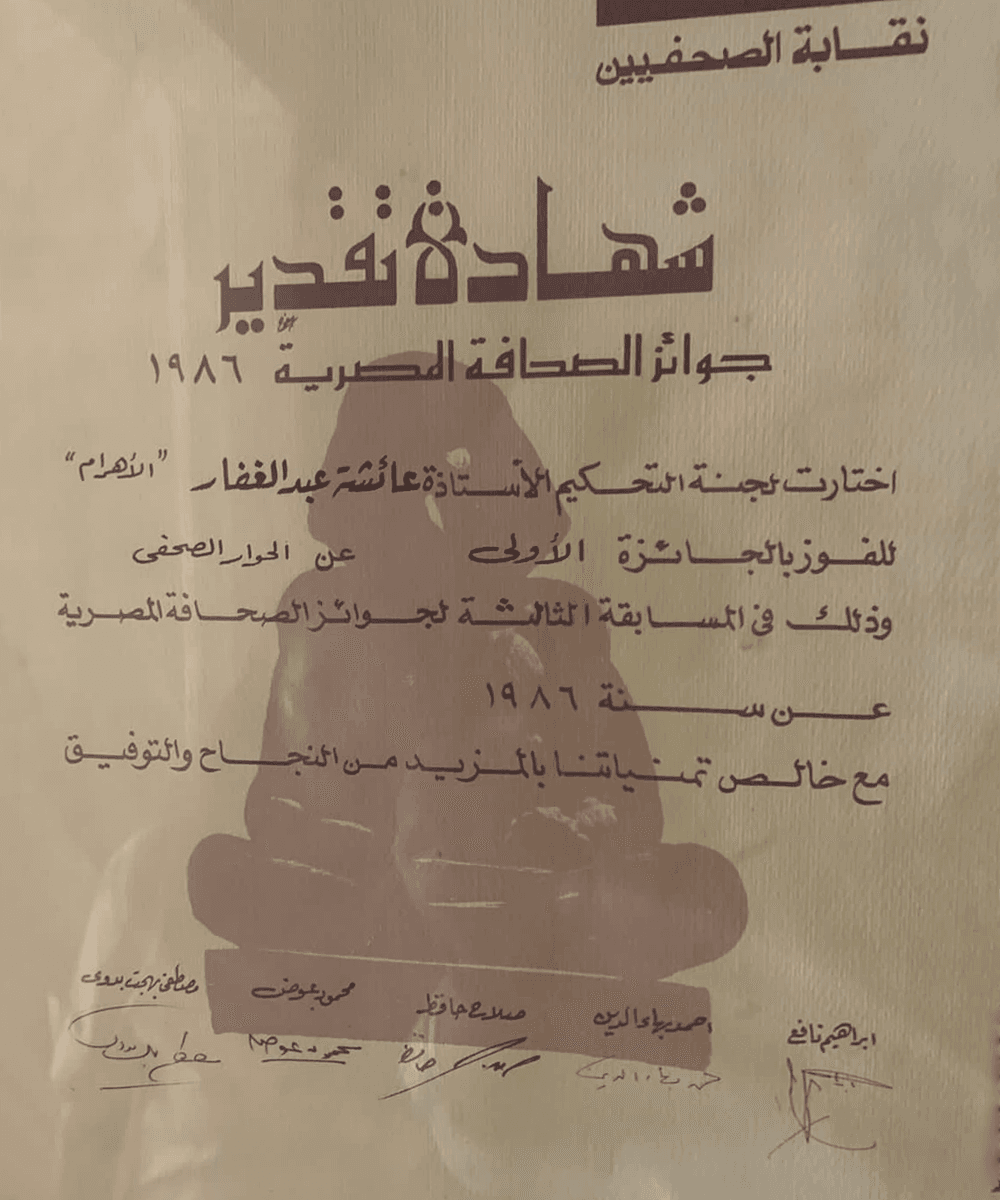 نقابة الصحفيين
شهادة تقدير
جوائز الصحافة المصرية ١٩٨٦
اختارت لجنة التحكيم الأستاذة عائشة عبد الغفار "الأهرام"
للفوز بالجائزة الأولى عن الحوار الصحفى
وذلك فى المسابقة الثالثة لجوائز الصحافة المصرية
عن سنة ١٩٨٦
مع خالص تمنياتنا بالمزيد من النجاح والتوفيق
ابراهيم نافع احمد بهاء الدين صلاح حافظ محمود عوض مصطفى بهجت بدوى